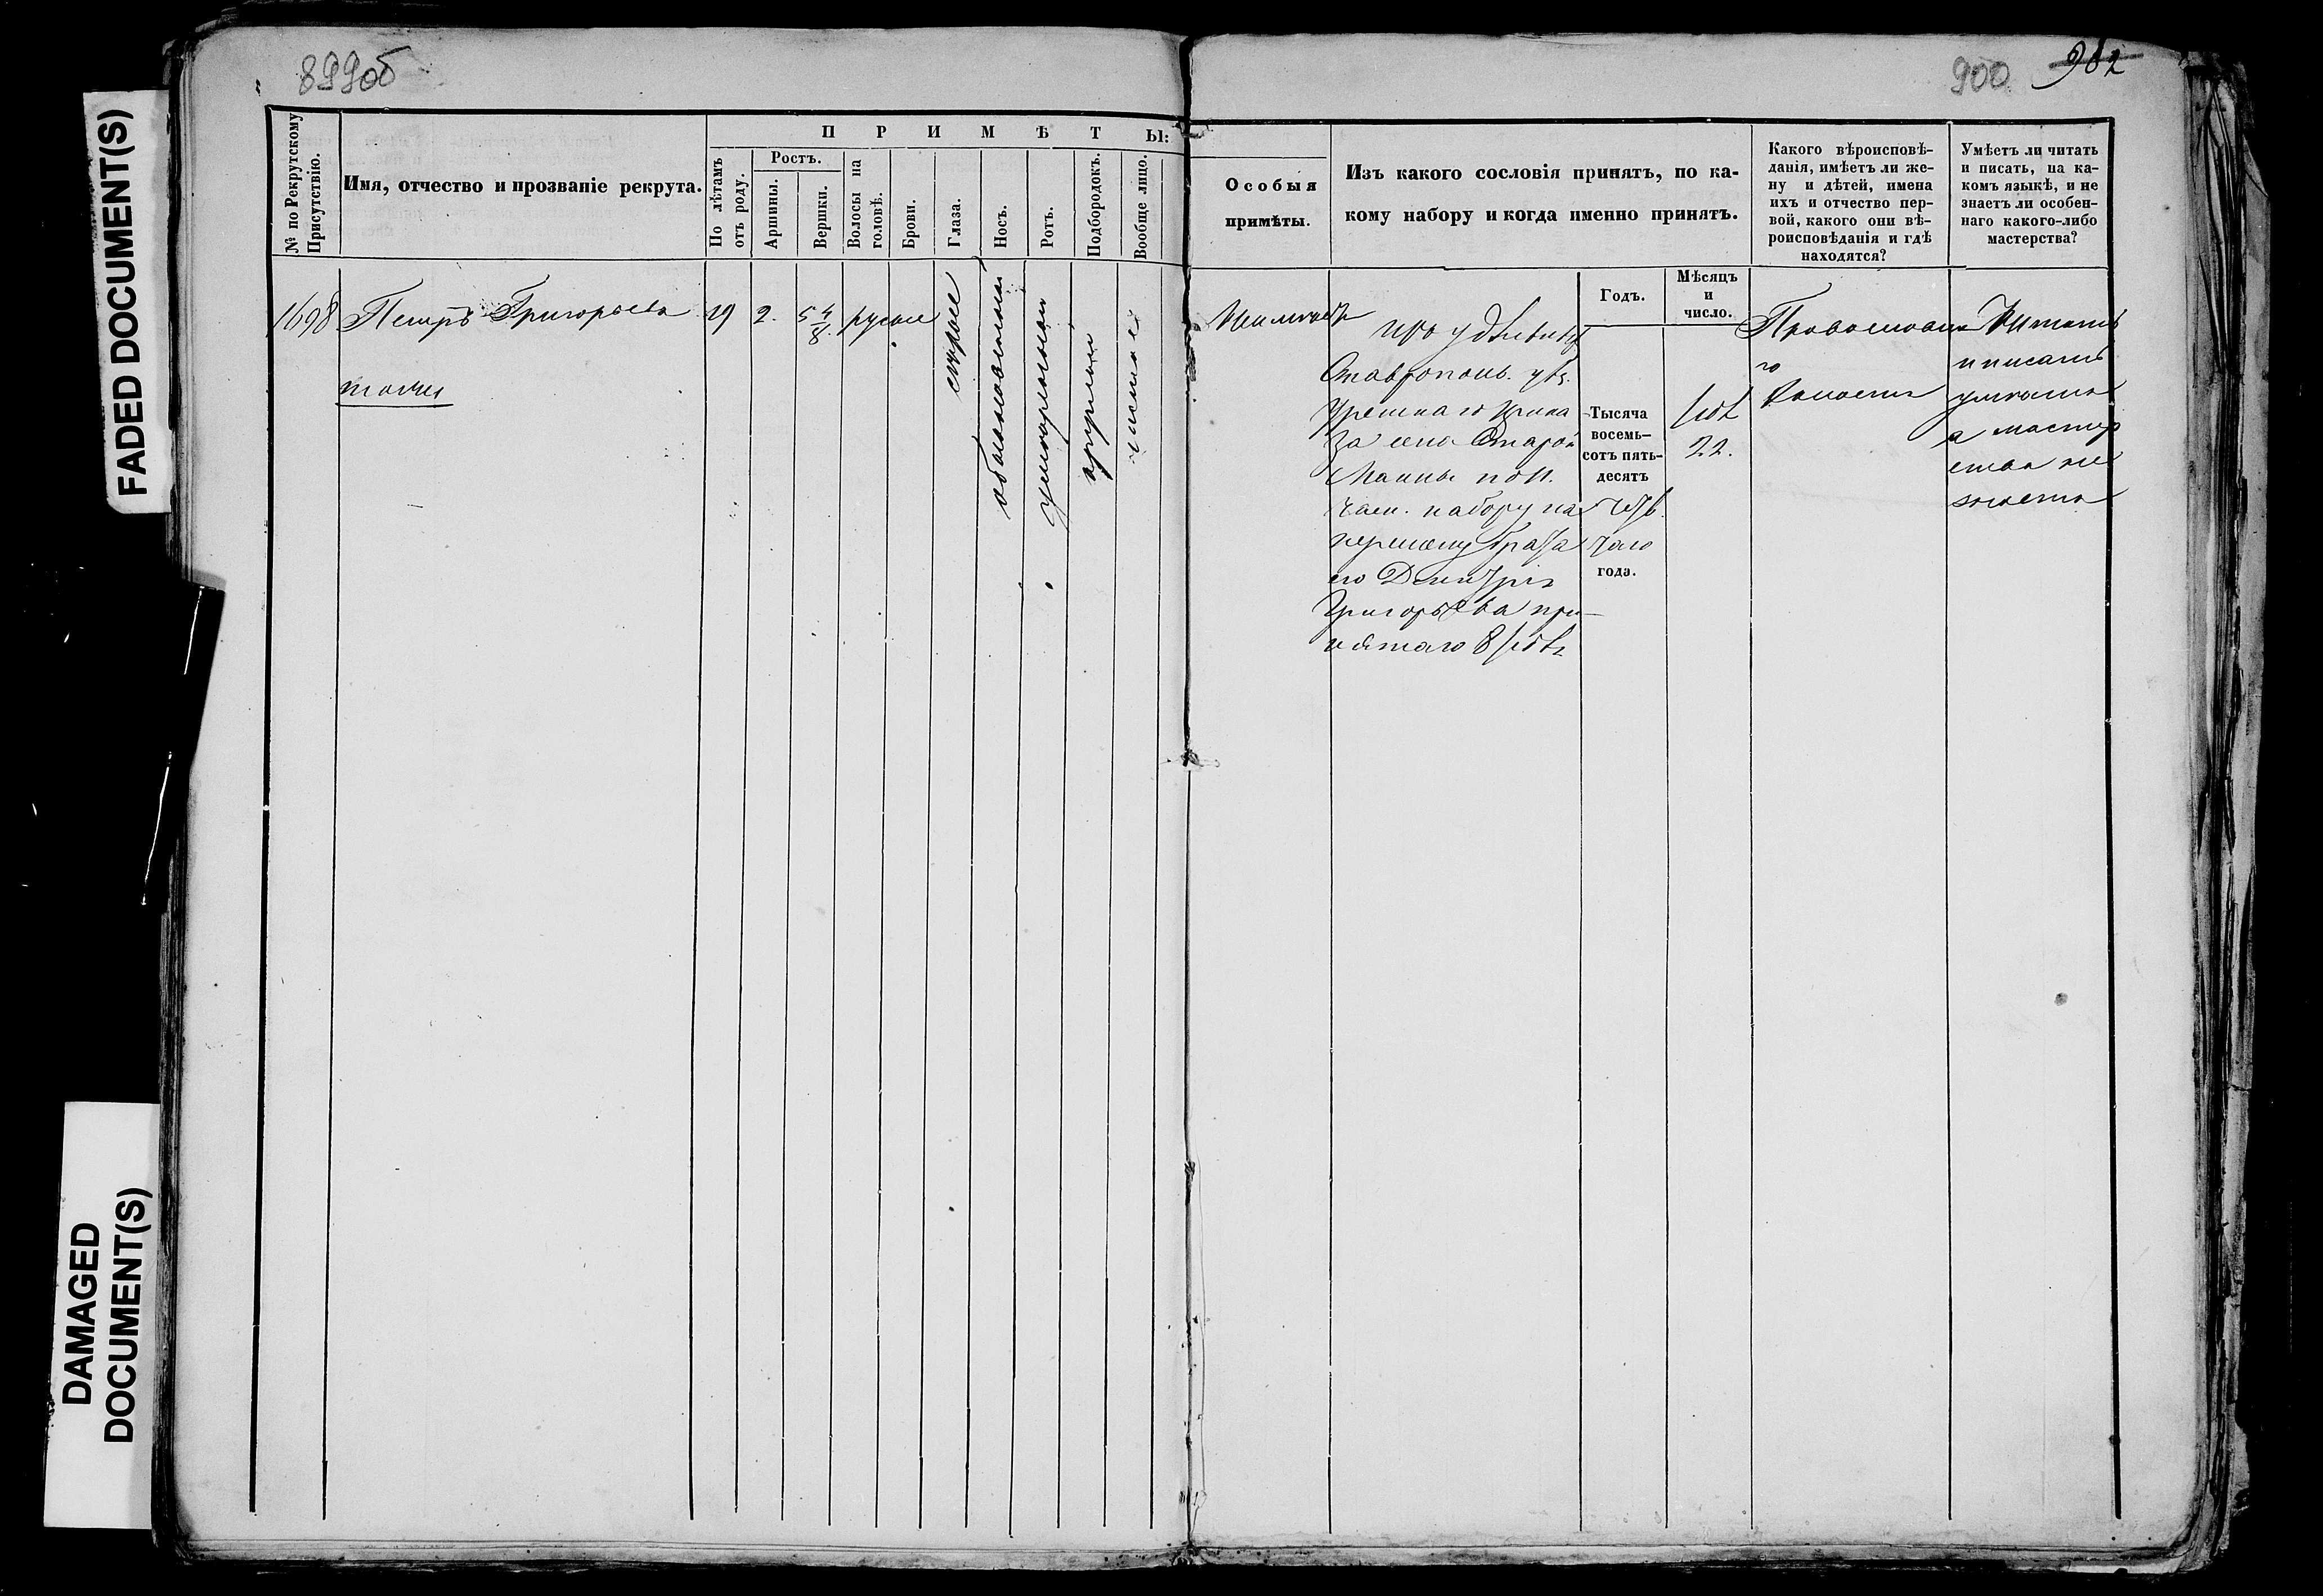 899об
900 982
FADED DOCUMENT(S)
DAMAGED
DOCUMENT(S)
№ по Рекрутскому
Присутствію.
Имя, отчество и прозваніе рекрута.
ПРИМѢТЫ:
По лѣтамъ
отъ роду.
Ростъ.
Аршины.
Вершки.
Волосы на
головѣ.
Брови.
Глаза.
Носъ.
Ротъ.
Подбородокъ.
Вообще лицо.
Особыя
примѣты.
Изъ какого сословія принятъ, по ка-
кому набору и когда именно принятъ.
Годъ.
Мѣсяцъ
и
число.
Какого вѣроисповѣ-
данія, имѣетъ ли же-
ну и дѣтей, имена
ихъ и отчество пер-
вой, какого они вѣ-
роисповѣданія и гдѣ
находятся?
Умѣетъ ли читать
и писать, на ка-
комъ языкѣ, и не
знаетъ ли особен-
наго какого-либо
мастерства?
1698 Петръ Григорьевъ 19 2. 5 4/8. русые
сѣрые
обыкновенный
умѣренный
круглый
чистое
изъ удѣльныхъ
Ставропол. уѣз.
за село Старой
Маины по 11.
част. набору на
перемѣну брата
его Дмитрія
Григорьева при-
нятаго 8
Тысяча
восемь-
сотъ пять-
десятъ
четвер
таго
года.
22.
Православна
го
холостъ
Читать
и писать
умѣетъ
а мастер
ства не
знаетъ